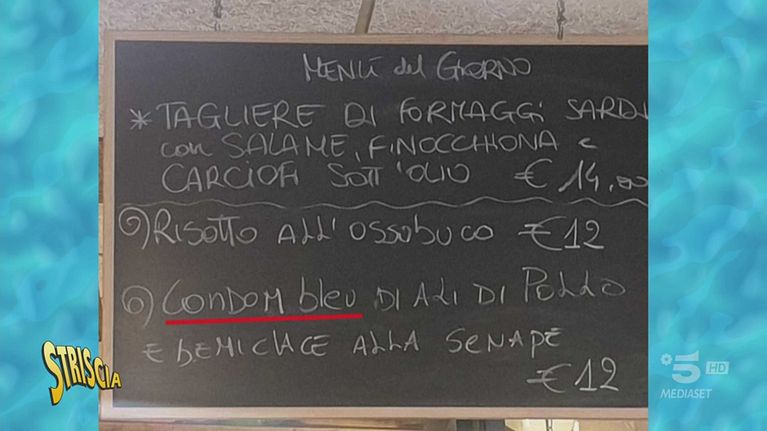 MENÙ del GIORNO
* TAGLIERE DI FORMAGGI SARDI
con SALAME, FINOCCHIONA e
CARCIOFI SOTT'OLIO € 14,00
RISOTTO ALL'OSSOBUCO €12
CONDOM bleu DI ALI DI POLLO
E BEMICLACE ALLA SENAPE
€12
STRISCIA
5 HD
MEDIASET